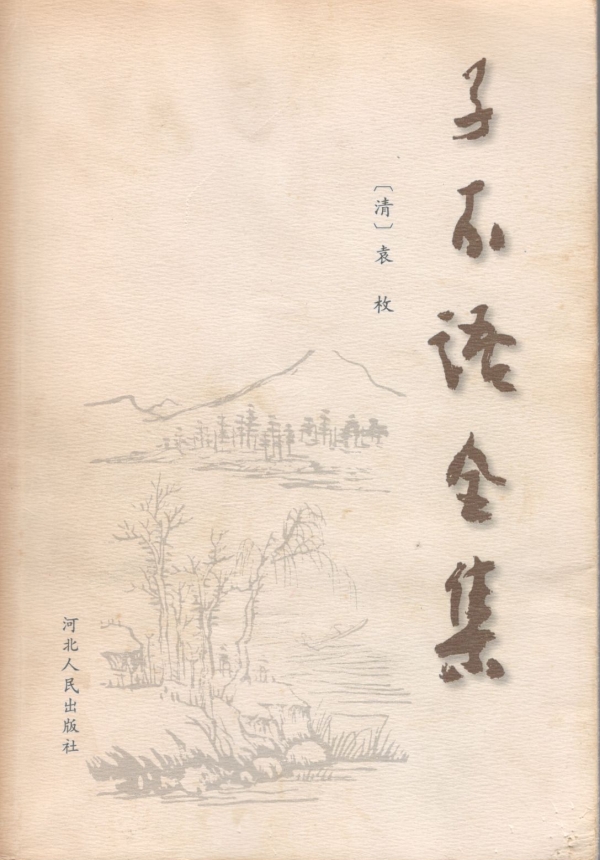 子不语全集
〔清〕袁 枚
河北人民出版社